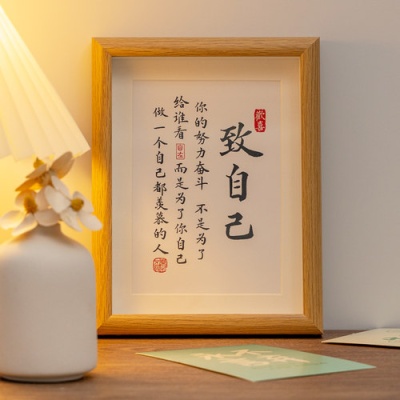 歡喜
致自己
你的努力奋斗 不是为了
给谁看 而是为了你自己
做一个自己都羡慕的人